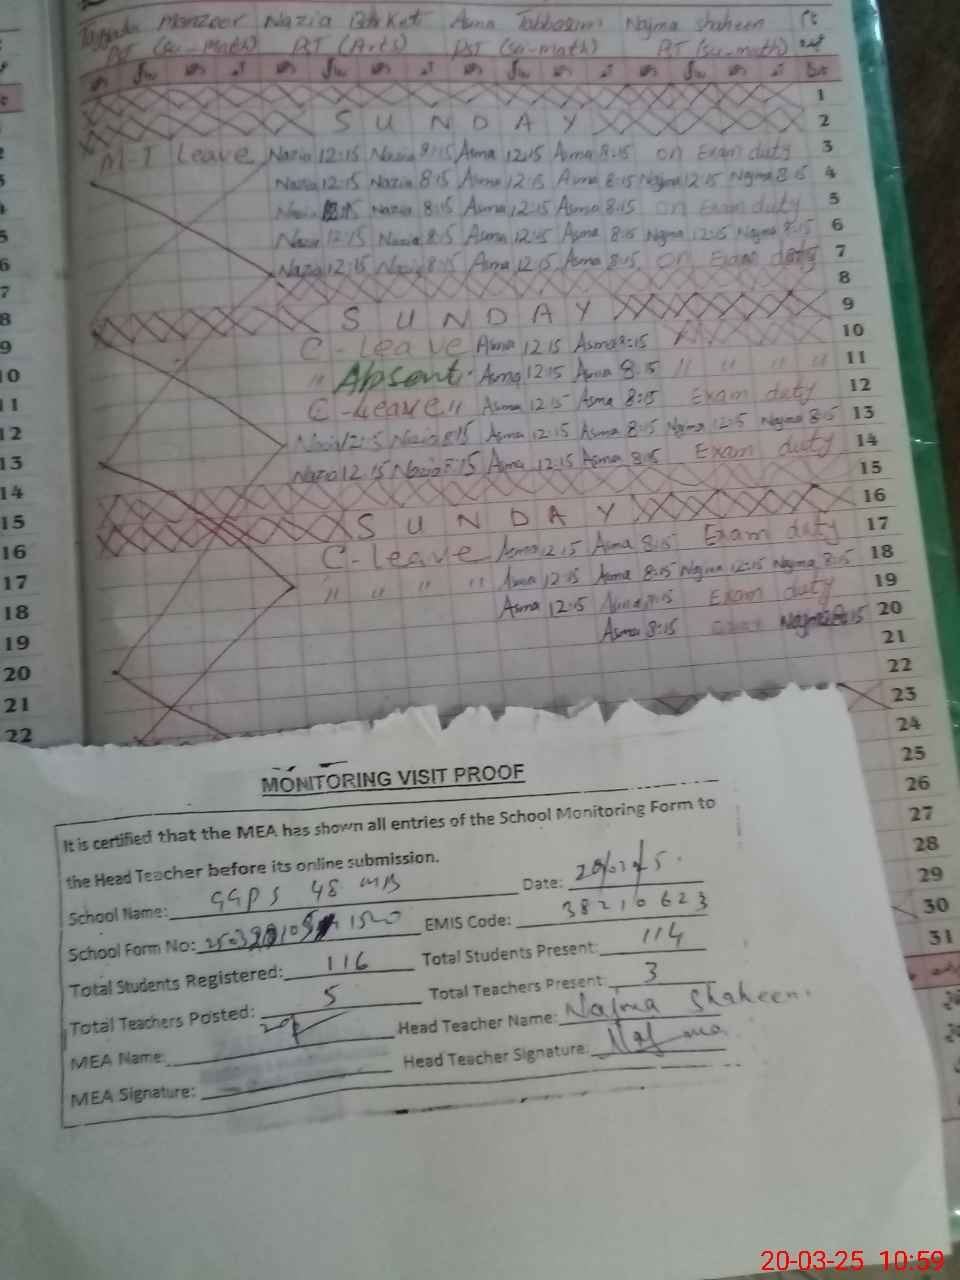 Manzoor Nazia Asma Tabbasum Najma shaheen
PST (Sci-math) PST (Arts) PST (Sci-math) PST (Sci-math)
1
S U N D A Y 2
M-T Leave Nazia 12:15 Nazia 8:15 Asma 12:15 Asma 8:15 on Exam duty 3
Nazia 12:15 Nazia 8:15 Asma 12:15 Asma 8:15 Najma 12:15 Najma 8:15 4
Nazia 8:15 Asma 12:15 Asma 8:15 on Exam duty 5
Nazia 12:15 Nazia 8:15 Asma 12:15 Asma 8:15 Najma 12:15 Najma 8:15 6
Nazia 12:15 Nazia 8:15 Asma 12:15 Asma 8:15 on Exam duty 7
8
S U N D A Y 9
C-leave Asma 12:15 Asma 8:15 10
" Absent. Asma 12:15 Asma 8:15 " " " " 11
C-Leave " Asma 12:15 Asma 8:15 Exam duty 12
Nazia 12:15 Nazia 8:15 Asma 12:15 Asma 8:15 Najma 12:15 Najma 8:15 13
Nazia 12:15 Nazia 8:15 Asma 12:15 Asma 8:15 Exam duty 14
15
S U N D A Y 16
C-leave Asma 12:15 Asma 8:15 Exam duty 17
" " " " Asma 12:15 Asma 8:15 Najma 12:15 Najma 8:15 18
Asma 12:15 Asma 8:15 Exam duty 19
Asma 8:15 Najma 8:15 20
21
22
23
24
25
26
27
28
29
30
31
7
8
9
10
11
12
13
14
15
16
17
18
19
20
21
22
MONITORING VISIT PROOF
It is certified that the MEA has shown all entries of the School Monitoring Form to
the Head Teacher before its online submission.
School Name: GGPS 48 MB Date:
School Form No: EMIS Code: 38210623
Total Students Registered: 116 Total Students Present: 114
Total Teachers Posted: 5 Total Teachers Present: 3
MEA Name: Head Teacher Name: Najma Shaheen.
MEA Signature: Head Teacher Signature: Najma
20-03-25 10:59